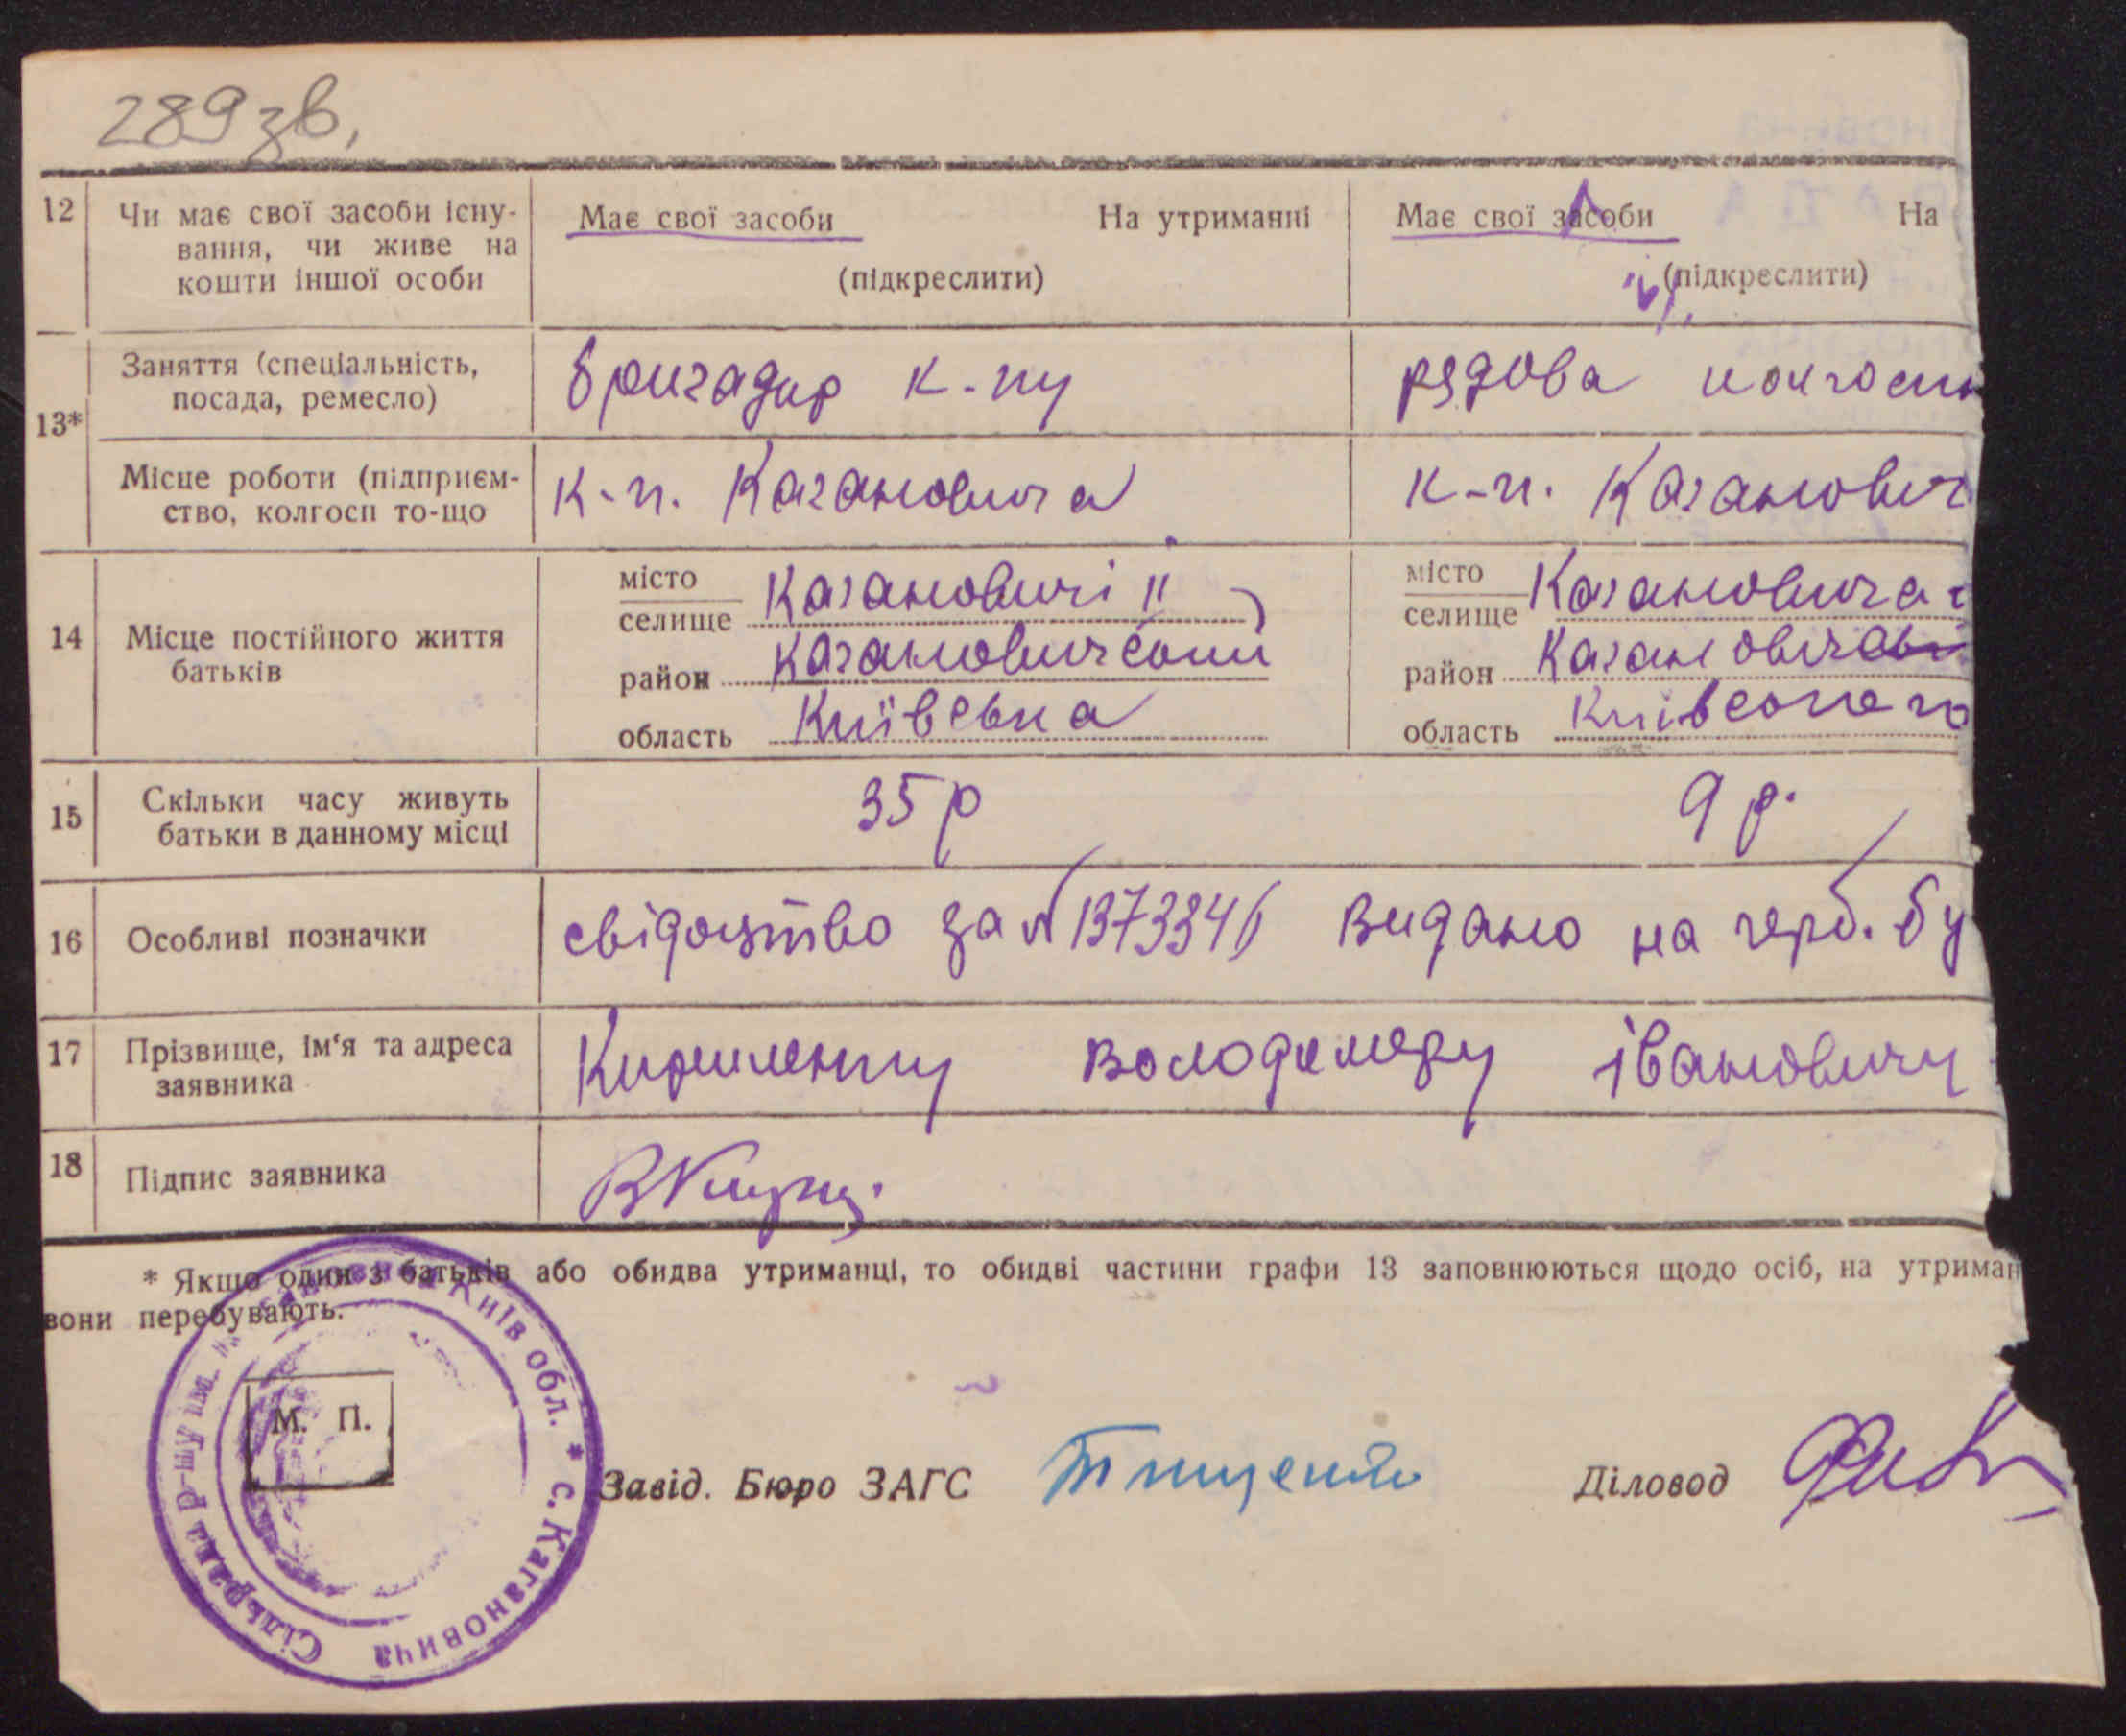 289 зв.
12 Чи має свої засоби існу-
вання, чи живе на
кошти іншої особи
Має свої засоби На утриманні
(підкреслити)
Має свої засоби На
(підкреслити)
13*
Заняття (спеціальність,
посада, ремесло)
бригадир к-пу
рядова колгосп
Місце роботи (підприєм-
ство, колгосп то-що
к-п. Кагановича
к-п. Каганович
14 Місце постійного життя
батьків
місто
селище Кагановичі II
район Кагановичський
область Київська
місто
селище Кагановича
район
область
15 Скільки часу живуть
батьки в данному місці
35 р
9 р.
16 Особливі позначки
свідоцтво за № видано на герб. бу
17 Прізвище, ім'я та адреса
заявника
Кириленку Володимеру Івановичу
18 Підпис заявника
* Якщо один з батьків або обидва утриманці, то обидві частини графи 13 заповнюються щодо осіб, на утриман
вони перебувають.
М. П.
Сільрада р-ну ім. Київ обл. * с. Кагановича
Завід. Бюро ЗАГС Тищенко
Діловод